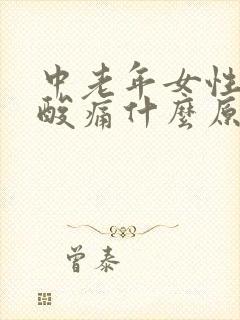 中老年女性
酸痛什麼原
曾泰